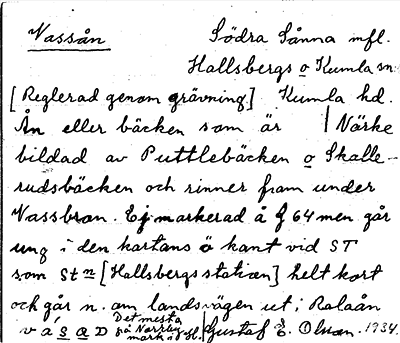 Vassån
Södra Sånna mfl.
Hallsbergs o Kumla sn
[Reglerad genom grävning] Kumla hd.
Ån eller bäcken som är | Närke
bildad av Puttlebäcken o Skalle-
rudsbäcken och rinner fram under
Vassbron. Ej markerad å f 64 men går
ung i den kartans ö kant vid ST
som Stn [Hallsbergs station] helt kort
och går n. om landsvägen ut i Ralaån
Det mesta
på Norrby
mark i H.
Gustaf E. Olsson. 1934.